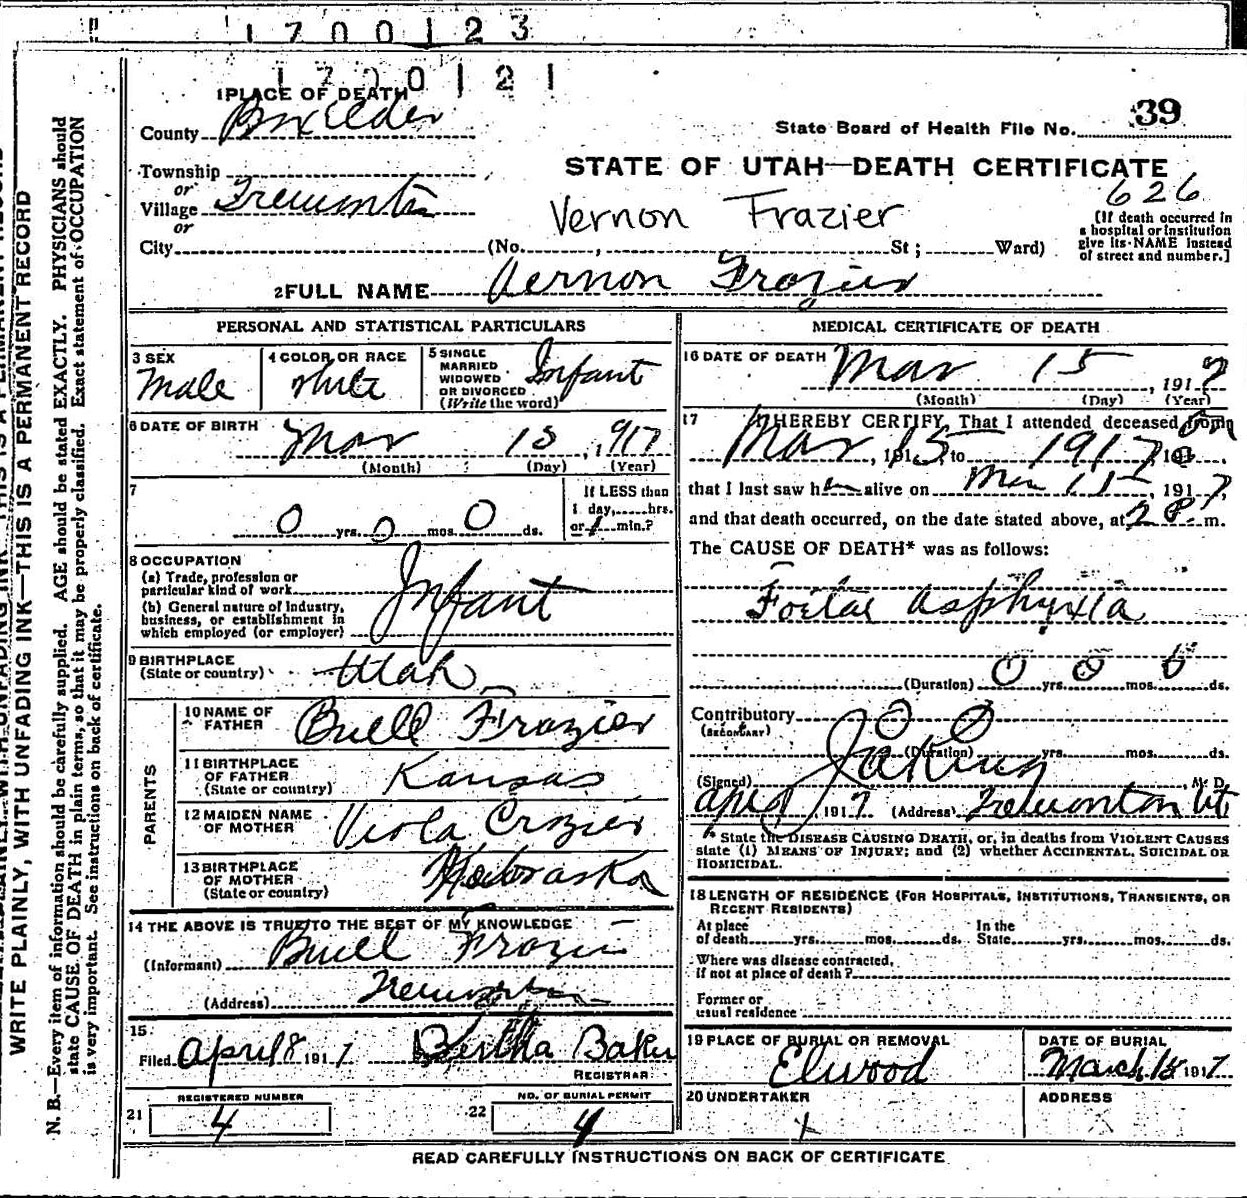 1700123
1700121
1 PLACE OF DEATH
County Box Elder
State Board of Health File No. 39
Township
or
Village Tremonton
or
City (No. , St ; Ward)
STATE OF UTAH—DEATH CERTIFICATE
626
Vernon Frazier
[If death occurred in
a hospital or institution
give its NAME instead
of street and number.]
2 FULL NAME Vernon Frazier
PERSONAL AND STATISTICAL PARTICULARS
3 SEX
Male
4 COLOR OR RACE
White
5 SINGLE
MARRIED
WIDOWED
OR DIVORCED
(Write the word)
Infant
6 DATE OF BIRTH
Mar 15, 1917
(Month) (Day) (Year)
7
0 yrs. 0 mos. 0 ds.
If LESS than
1 day, hrs.
or 1 min.?
8 OCCUPATION
(a) Trade, profession or
particular kind of work
(b) General nature of Industry,
business, or establishment in
which employed (or employer)
Infant
9 BIRTHPLACE
(State or country)
Utah
PARENTS
10 NAME OF
FATHER
Buell Frazier
11 BIRTHPLACE
OF FATHER
(State or country)
Kansas
12 MAIDEN NAME
OF MOTHER
Viola Crozier
13 BIRTHPLACE
OF MOTHER
(State or country)
Nebraska
14 THE ABOVE IS TRUE TO THE BEST OF MY KNOWLEDGE
(Informant) Buell Frazier
(Address) Tremonton
15
Filed April 8 1917 Bertha Baker
REGISTRAR
21
REGISTERED NUMBER
4
22
NO. OF BURIAL PERMIT
4
MEDICAL CERTIFICATE OF DEATH
16 DATE OF DEATH
Mar 15, 1917
(Month) (Day) (Year)
17 I HEREBY CERTIFY, That I attended deceased from on
Mar, 1915, to 1917, 191
that I last saw h alive on Mar 15, 1917,
and that death occurred, on the date stated above, at 2 P. m.
The CAUSE OF DEATH* was as follows:
Foetal asphyxia
(Duration) 0 yrs. 0 mos. 0 ds.
Contributory 0 0
(SECONDARY)
(Duration) yrs. mos. ds.
(Signed) , M. D.
April, 1917 (Address) Tremonton Ut
* State the DISEASE CAUSING DEATH, or, in deaths from VIOLENT CAUSES
state (1) MEANS OF INJURY; and (2) whether ACCIDENTAL, SUICIDAL OR
HOMICIDAL.
18 LENGTH OF RESIDENCE (FOR HOSPITALS, INSTITUTIONS, TRANSIENTS, OR
RECENT RESIDENTS)
At place
of death yrs. mos. ds.
In the
State yrs. mos. ds.
Where was disease contracted,
if not at place of death?
Former or
usual residence
19 PLACE OF BURIAL OR REMOVAL
Elwood
DATE OF BURIAL
March 15 1917
20 UNDERTAKER
X
ADDRESS
READ CAREFULLY INSTRUCTIONS ON BACK OF CERTIFICATE
WRITE PLAINLY, WITH UNFADING INK—THIS IS A PERMANENT RECORD
N. B.—Every item of information should be carefully supplied. AGE should be stated EXACTLY. PHYSICIANS should
state CAUSE OF DEATH in plain terms, so that it may be properly classified. Exact statement of OCCUPATION
is very important. See instructions on back of certificate.